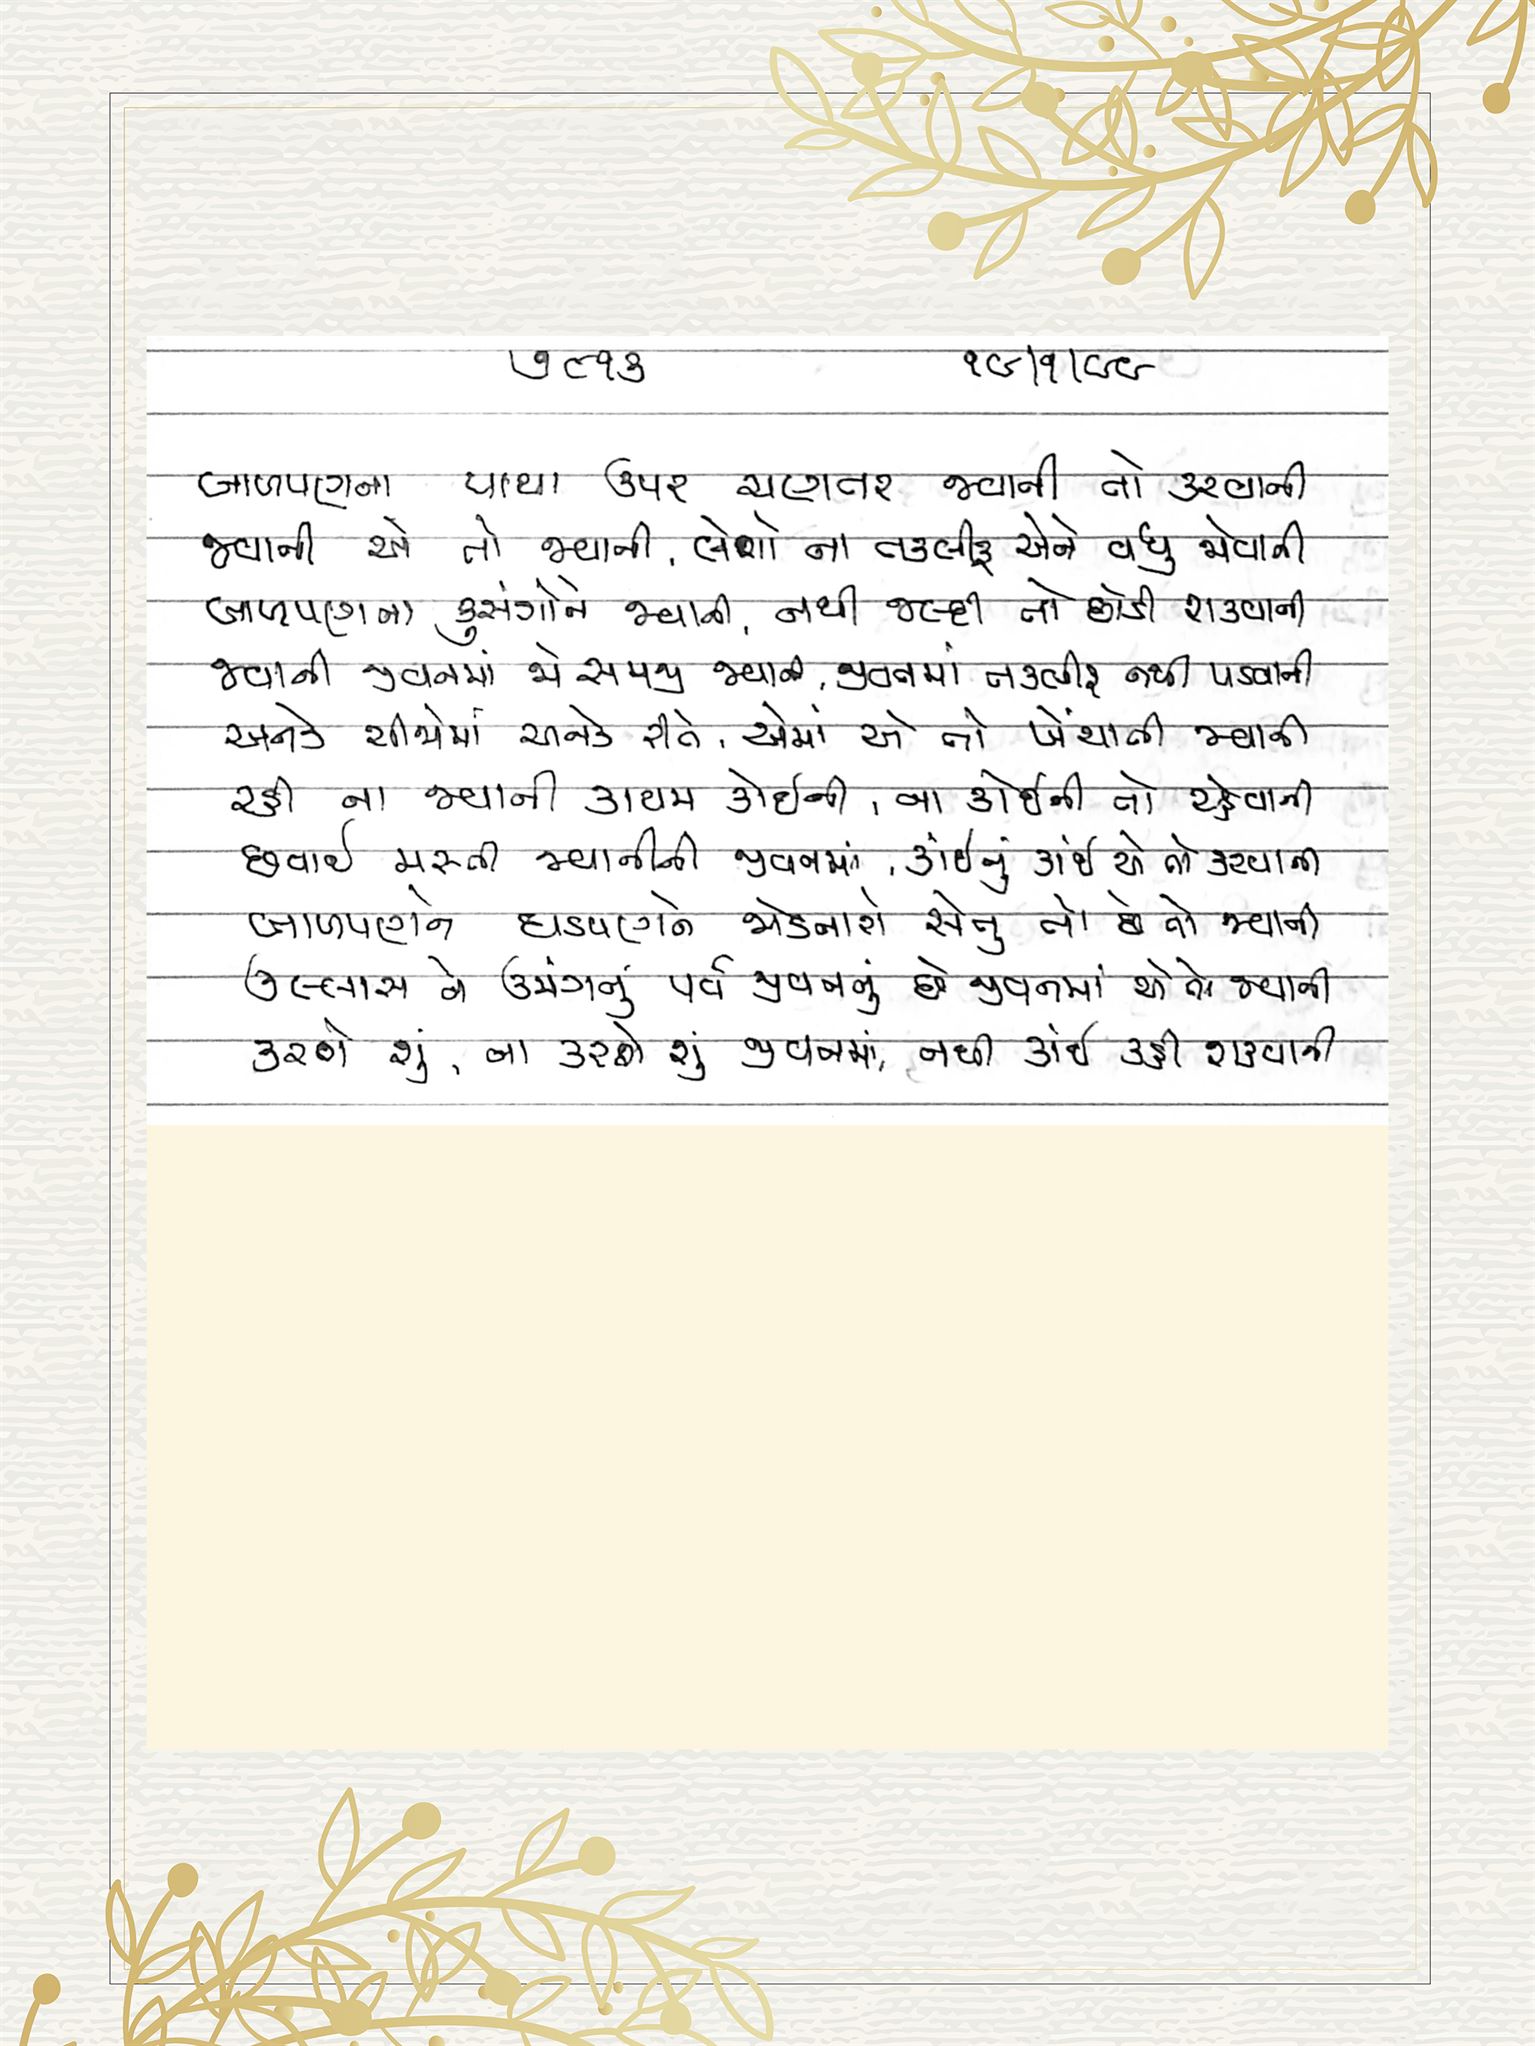 ૭૯૧૩ ૧૯/૧/૯૯
બાળપણના પાયા ઉપર ચણતર જ્વાની તો કરવાની
જ્વાની એ તો જ્વાની, લેશો ના તકલીફ એને વધુ જોવાની
બાળપણના કુસંગોને જ્વાની, નથી જલ્દી તો છોડી શકવાની
જ્વાની જીવનમાં જો સમજી જ્વાની, જીવનમાં તકલીફ નથી પડવાની
અનેક ચીજોમાં અનેક રીતે, એમાં એ તો ખેંચાતી જ્વાની
રહી ના જ્વાની કાયમ કોઈની, ના કોઈની તો રહેવાની
છવાઈ મસ્તી જ્વાનીની જીવનમાં, કાંઈનું કાંઈ એ તો કરવાની
બાળપણને ઘડપણને જોડનારો સેતુ તો છે તો જ્વાની
ઉલ્લાસ ને ઉમંગનું પર્વ જીવનનું છે જીવનમાં એ તો જ્વાની
કરશે શું, ના કરશે શું જીવનમાં, નથી કાંઈ કહી શકવાની